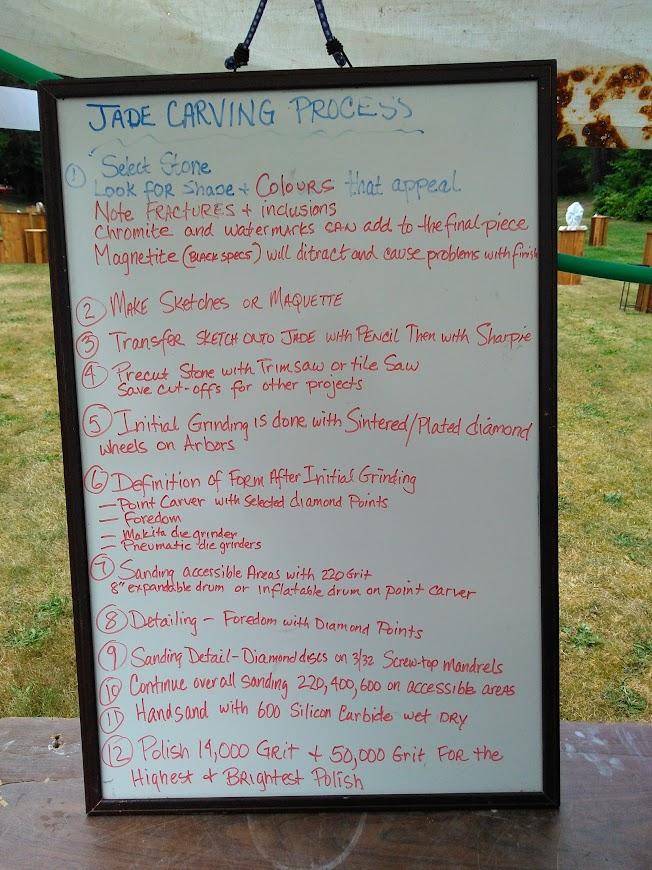 JADE CARVING PROCESS
① Select Stone
Look FOR Shape + Colours that appeal
Note FRACTURES + inclusions
Chromite and watermarks CAN add to the final piece
Magnetite (BLACK SPECS) will ditract and cause problems with finish
② MAKE SKetches OR MAQUETTE
③ Transfer SKETCH ONTO JADE with PENCIL Then with Sharpie
④ Precut Stone with Trimsaw or tile Saw
Save cut-offs for other projects
⑤ Initial Grinding is done with Sintered/Plated diamond
wheels on Arbors
⑥ Definition of Form After Initial Grinding
— Point Carver with Selected diamond Points
— Foredom
— Makita die grinder
— Pneumatic die grinders
⑦ Sanding accessible Areas with 220 Grit
8" expandable drum or inflatable drum on point carver
⑧ Detailing - Foredom with Diamond Points
⑨ Sanding Detail - Diamond discs on 3/32 Screw-top mandrels
⑩ Continue overall sanding 220, 400, 600 on accessible areas
⑪ Handsand with 600 Silicon Carbide wet DRY
⑫ Polish 14,000 Grit + 50,000 Grit FOR the
Highest & Brightest Polish